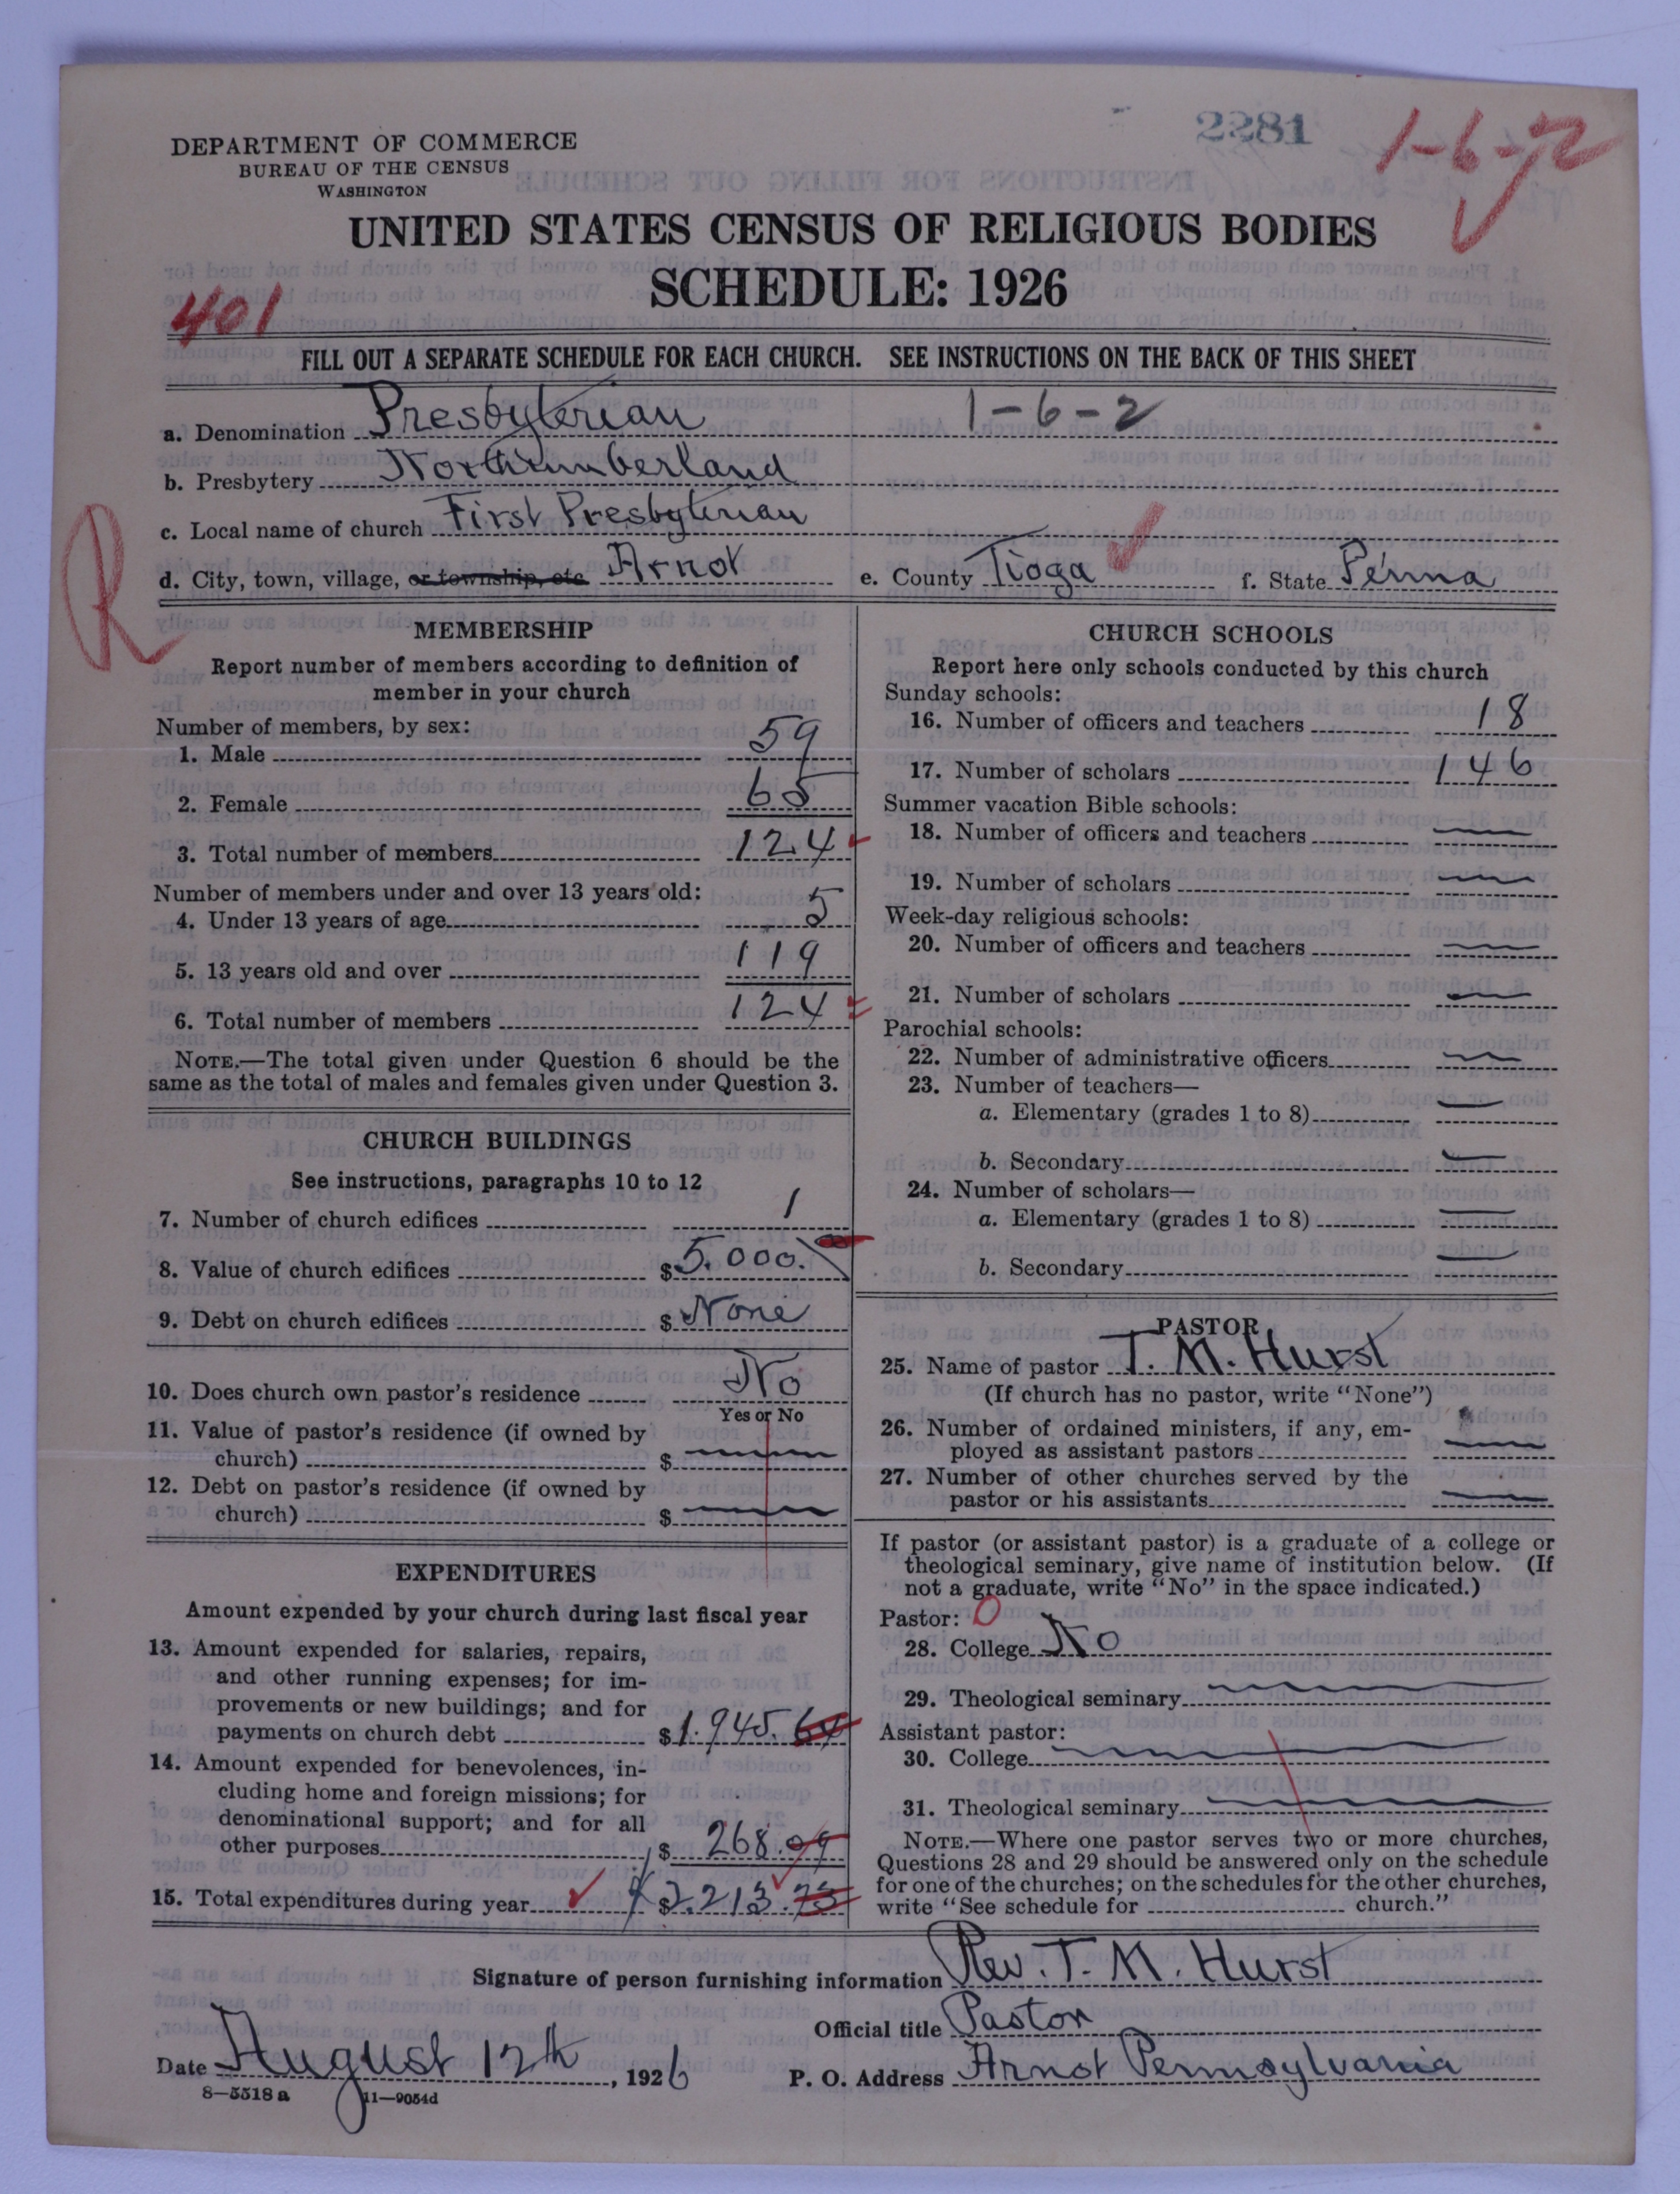 2281
1-6-2
DEPARTMENT OF COMMERCE
BUREAU OF THE CENSUS
WASHINGTON
UNITED STATES CENSUS OF RELIGIOUS BODIES
SCHEDULE: 1926
401
FILL OUT A SEPARATE SCHEDULE FOR EACH CHURCH. SEE INSTRUCTIONS ON THE BACK OF THIS SHEET
a. Denomination Presbyterian 1-6-2
b. Presbytery Northumberland
c. Local name of church First Presbyterian
R
d. City, town, village, or township, etc Arnot e. County Tioga f. State Penna
MEMBERSHIP
Report number of members according to definition of
member in your church
Number of members, by sex:
1. Male 59
2. Female 65
3. Total number of members 124
Number of members under and over 13 years old:
4. Under 13 years of age 5
5. 13 years old and over 119
6. Total number of members 124
NOTE.—The total given under Question 6 should be the
same as the total of males and females given under Question 3.
CHURCH BUILDINGS
See instructions, paragraphs 10 to 12
7. Number of church edifices 1
8. Value of church edifices $ 5.000.
9. Debt on church edifices $ None
10. Does church own pastor's residence No
Yes or No
11. Value of pastor's residence (if owned by
church) $
12. Debt on pastor's residence (if owned by
church) $
EXPENDITURES
Amount expended by your church during last fiscal year
13. Amount expended for salaries, repairs,
and other running expenses; for im-
provements or new buildings; and for
payments on church debt $ 1.945.64
14. Amount expended for benevolences, in-
cluding home and foreign missions; for
denominational support; and for all
other purposes $ 268.09
15. Total expenditures during year $ 2.213.73
CHURCH SCHOOLS
Report here only schools conducted by this church
Sunday schools:
16. Number of officers and teachers 18
17. Number of scholars 146
Summer vacation Bible schools:
18. Number of officers and teachers
19. Number of scholars
Week-day religious schools:
20. Number of officers and teachers
21. Number of scholars
Parochial schools:
22. Number of administrative officers
23. Number of teachers—
a. Elementary (grades 1 to 8)
b. Secondary
24. Number of scholars—
a. Elementary (grades 1 to 8)
b. Secondary
PASTOR
25. Name of pastor T. M. Hurst
(If church has no pastor, write "None")
26. Number of ordained ministers, if any, em-
ployed as assistant pastors
27. Number of other churches served by the
pastor or his assistants
If pastor (or assistant pastor) is a graduate of a college or
theological seminary, give name of institution below. (If
not a graduate, write "No" in the space indicated.)
Pastor: 0
28. College No
29. Theological seminary
Assistant pastor:
30. College
31. Theological seminary
NOTE.—Where one pastor serves two or more churches,
Questions 28 and 29 should be answered only on the schedule
for one of the churches; on the schedules for the other churches,
write "See schedule for church."
Signature of person furnishing information Rev. T. M. Hurst
Official title Pastor
Date August 12th, 1926 P. O. Address Arnot Pennsylvania
8—5518 a 11—9054d